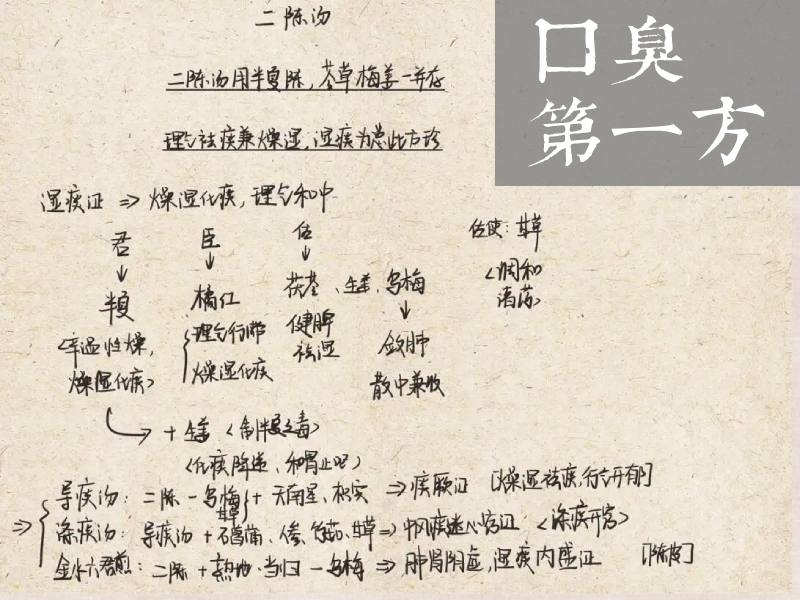 二陈汤
口臭
第一方
二陈汤用半夏陈，苓草梅姜一并存
理气祛痰兼燥湿，湿痰为患此方珍
湿痰证 ⇒ 燥湿化痰，理气和中
君 臣 佐
佐使：甘草
↓ ↓ ↓
<调和
半夏 橘红 茯苓、生姜、乌梅
诸药>
<辛温性燥， 理气行滞 健脾 ↓
燥湿化痰> 燥湿化痰 祛湿 敛肺
散中兼收
→ +生姜 <制半夏之毒>
<化痰降逆、和胃止呕>
⇒ 导痰汤：二陈－乌梅 甘草＋天南星、枳实 ⇒ 痰厥证 [燥湿祛痰，行气开郁]
涤痰汤：导痰汤＋石菖蒲、人参、竹茹、甘草 ⇒ 中风痰迷心窍证 <涤痰开窍>
金水六君煎：二陈＋熟地·当归－乌梅 ⇒ 肺肾阴虚，湿痰内盛证 [陈皮]